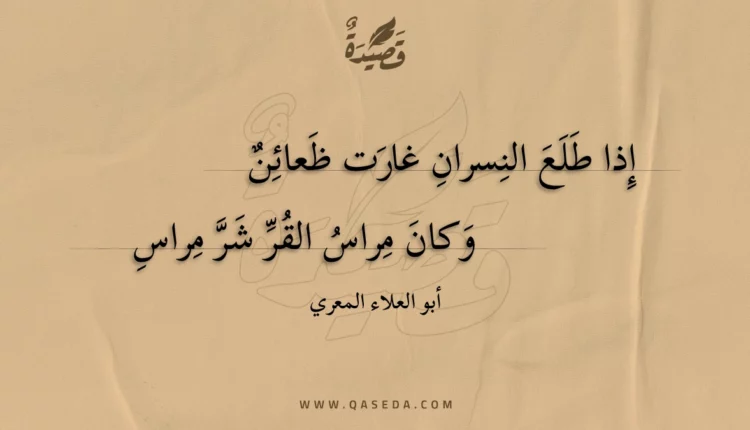 قَصِيدَةٌ
إِذا طَلَعَ النِسرانِ غارَت ظَعائِنٌ
وَكانَ مِراسُ القُرِّ شَرَّ مِراسِ
أبو العلاء المعري
WWW.QASEDA.COM